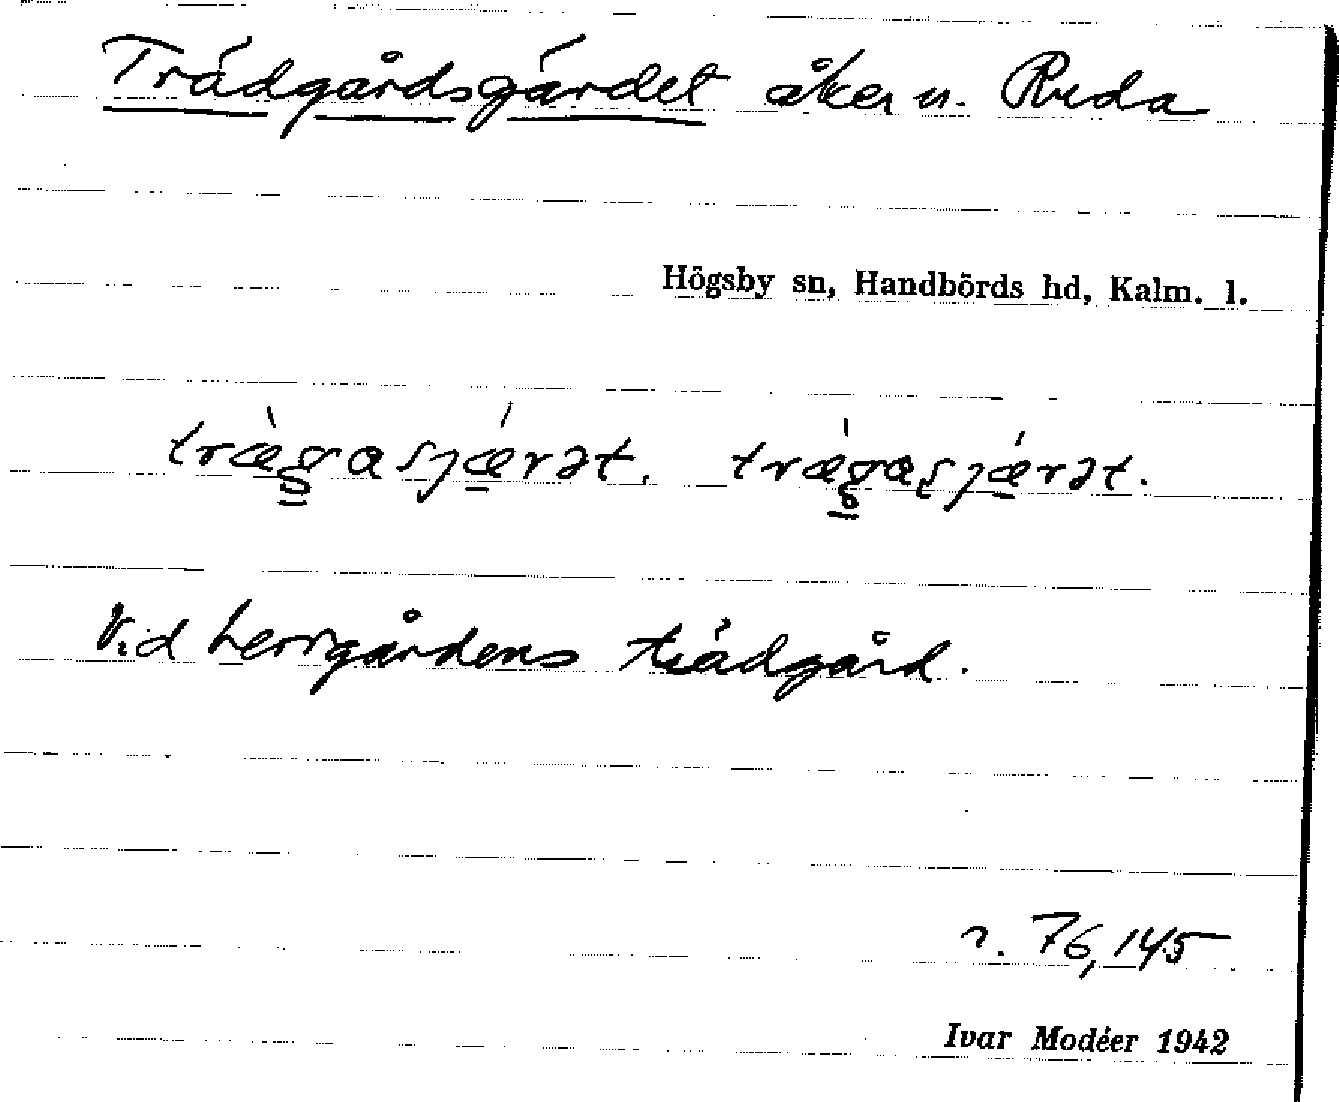 Trädgårdsgärdet åker u. Ruda
Högsby sn, Handbörds hd, Kalm. l.
Vid herrgårdens trädgård.
r. 76, 145
Ivar Modéer 1942